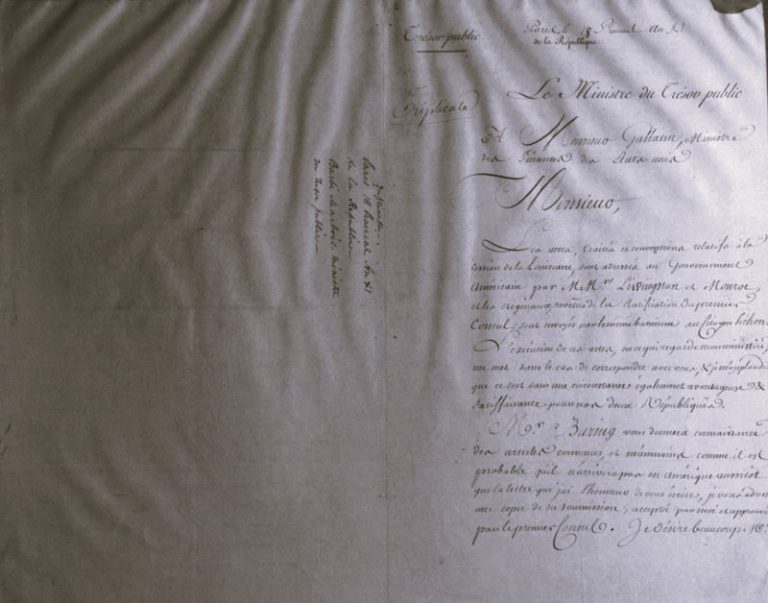 Trésor public
Paris le 18 Prairial An XI
de la République
Triplicata
Le Ministre du Trésor public
A Monsieur Gallatin, Ministre
des Finances des Etats unis
Monsieur,
Les actes, traités et conventions relatifs à la
cession de la Louisiane, sont adressés au Gouvernement
Américain par M.Mrs Livingston et Monroe,
et les originaux revêtus de la Ratification du premier
Consul, sont envoyés par le au Citoyen Pichon.
L'exécution de ces actes, en ce qui regarde mon ministère,
me met dans le cas de correspondre avec vous, &
que ce soit dans une circonstance également avantageuse &
pour nos deux Républiques.
Mr Baring vous donnera connaissance
des articles convenus, et néanmoins comme il est
probable qu'il n'arrivera pas en Amérique aussitôt
que la lettre que j'ai l'honneur de vous écrire, je vous
une copie de sa soumission, acceptée par moi et approuvée
par le premier Consul. Je désire beaucoup M.
Paris 18 Prairial An XI
de la République
Barbé Marbois ministre
du trésor public